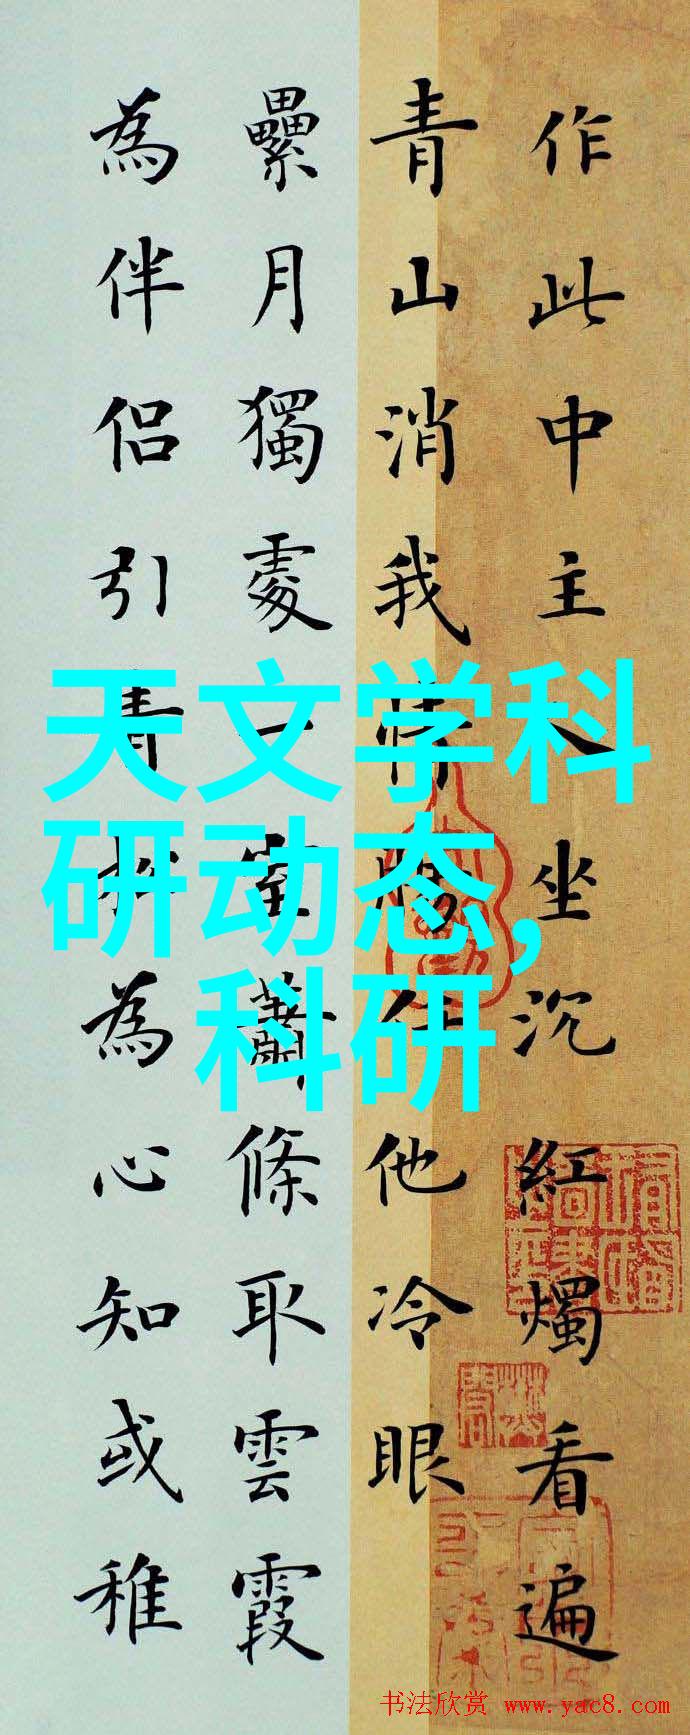 作此中主人坐沉紅燭看遍
青山消我情腸任他冷眼
纍月獨處一室蕭條取雲霞
為伴侶引青松為心知或稚
天文学科
研动态,
科研
书法欣赏 www.yac8.com